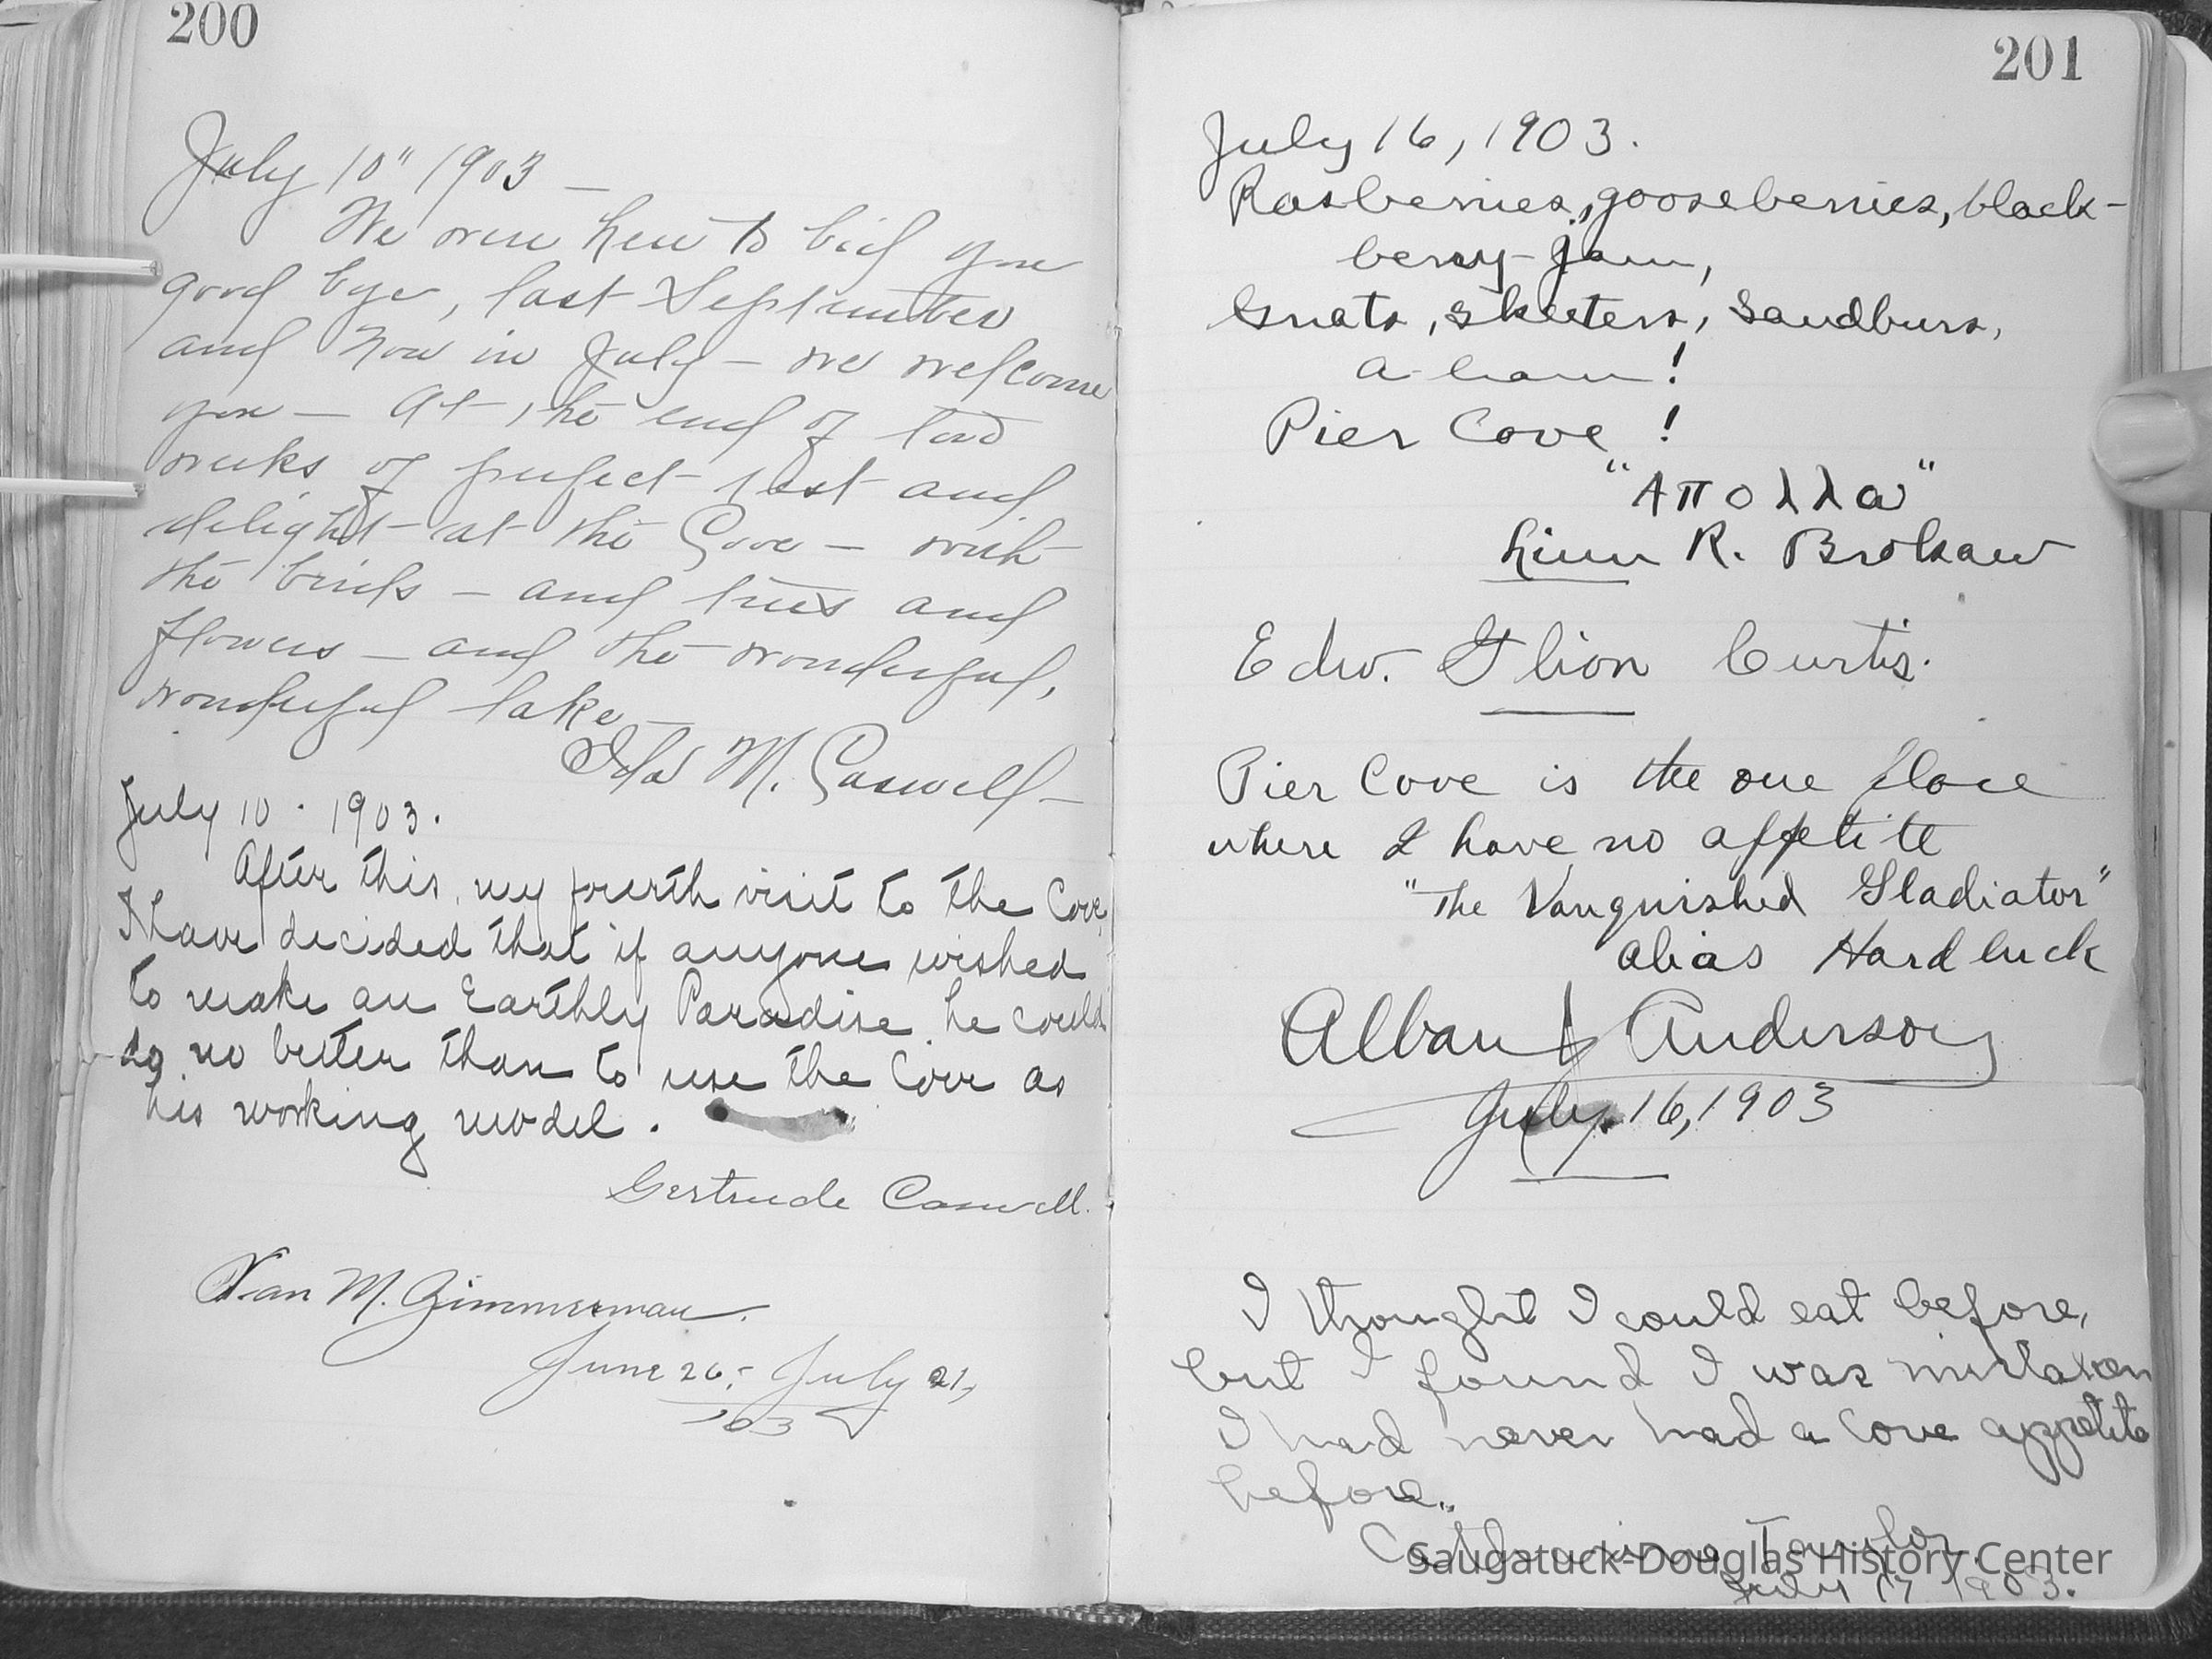 200
July 10" 1903 —
We were here to bid you
good bye, last September
and now in July — we welcome
you — At the end of two
weeks of perfect rest and
delight — at the Cove — with
the birds — and trees and
flowers — and the wonderful,
wonderful lake —
Ida M. Caswell —
July 10 . 1903.
After this, my fourth visit to the Cove,
I have decided that if anyone wished
to make an Earthly Paradise he could
do no better than to use the Cove as
his working model.
Gertrude Caswell.
M. Zimmerman.
June 26 - July 21,
'03
201
July 16, 1903.
Rasberries, gooseberries, black-
berry-jam,
Gnats, skeeters, sandburs,
a-ham!
Pier Cove!
"Απολλω"
Linn R. Brokaw
Edw. Curtis.
Pier Cove is the one place
where I have no appetite
"The Vanquished Gladiator"
alias Hard luck
Alban J Anderson
July 16, 1903
I thought I could eat before,
but I found I was mistaken
I had never had a Cove appetite
before.
Catharine Taylor.
July 17 1903.
Saugatuck-Douglas History Center